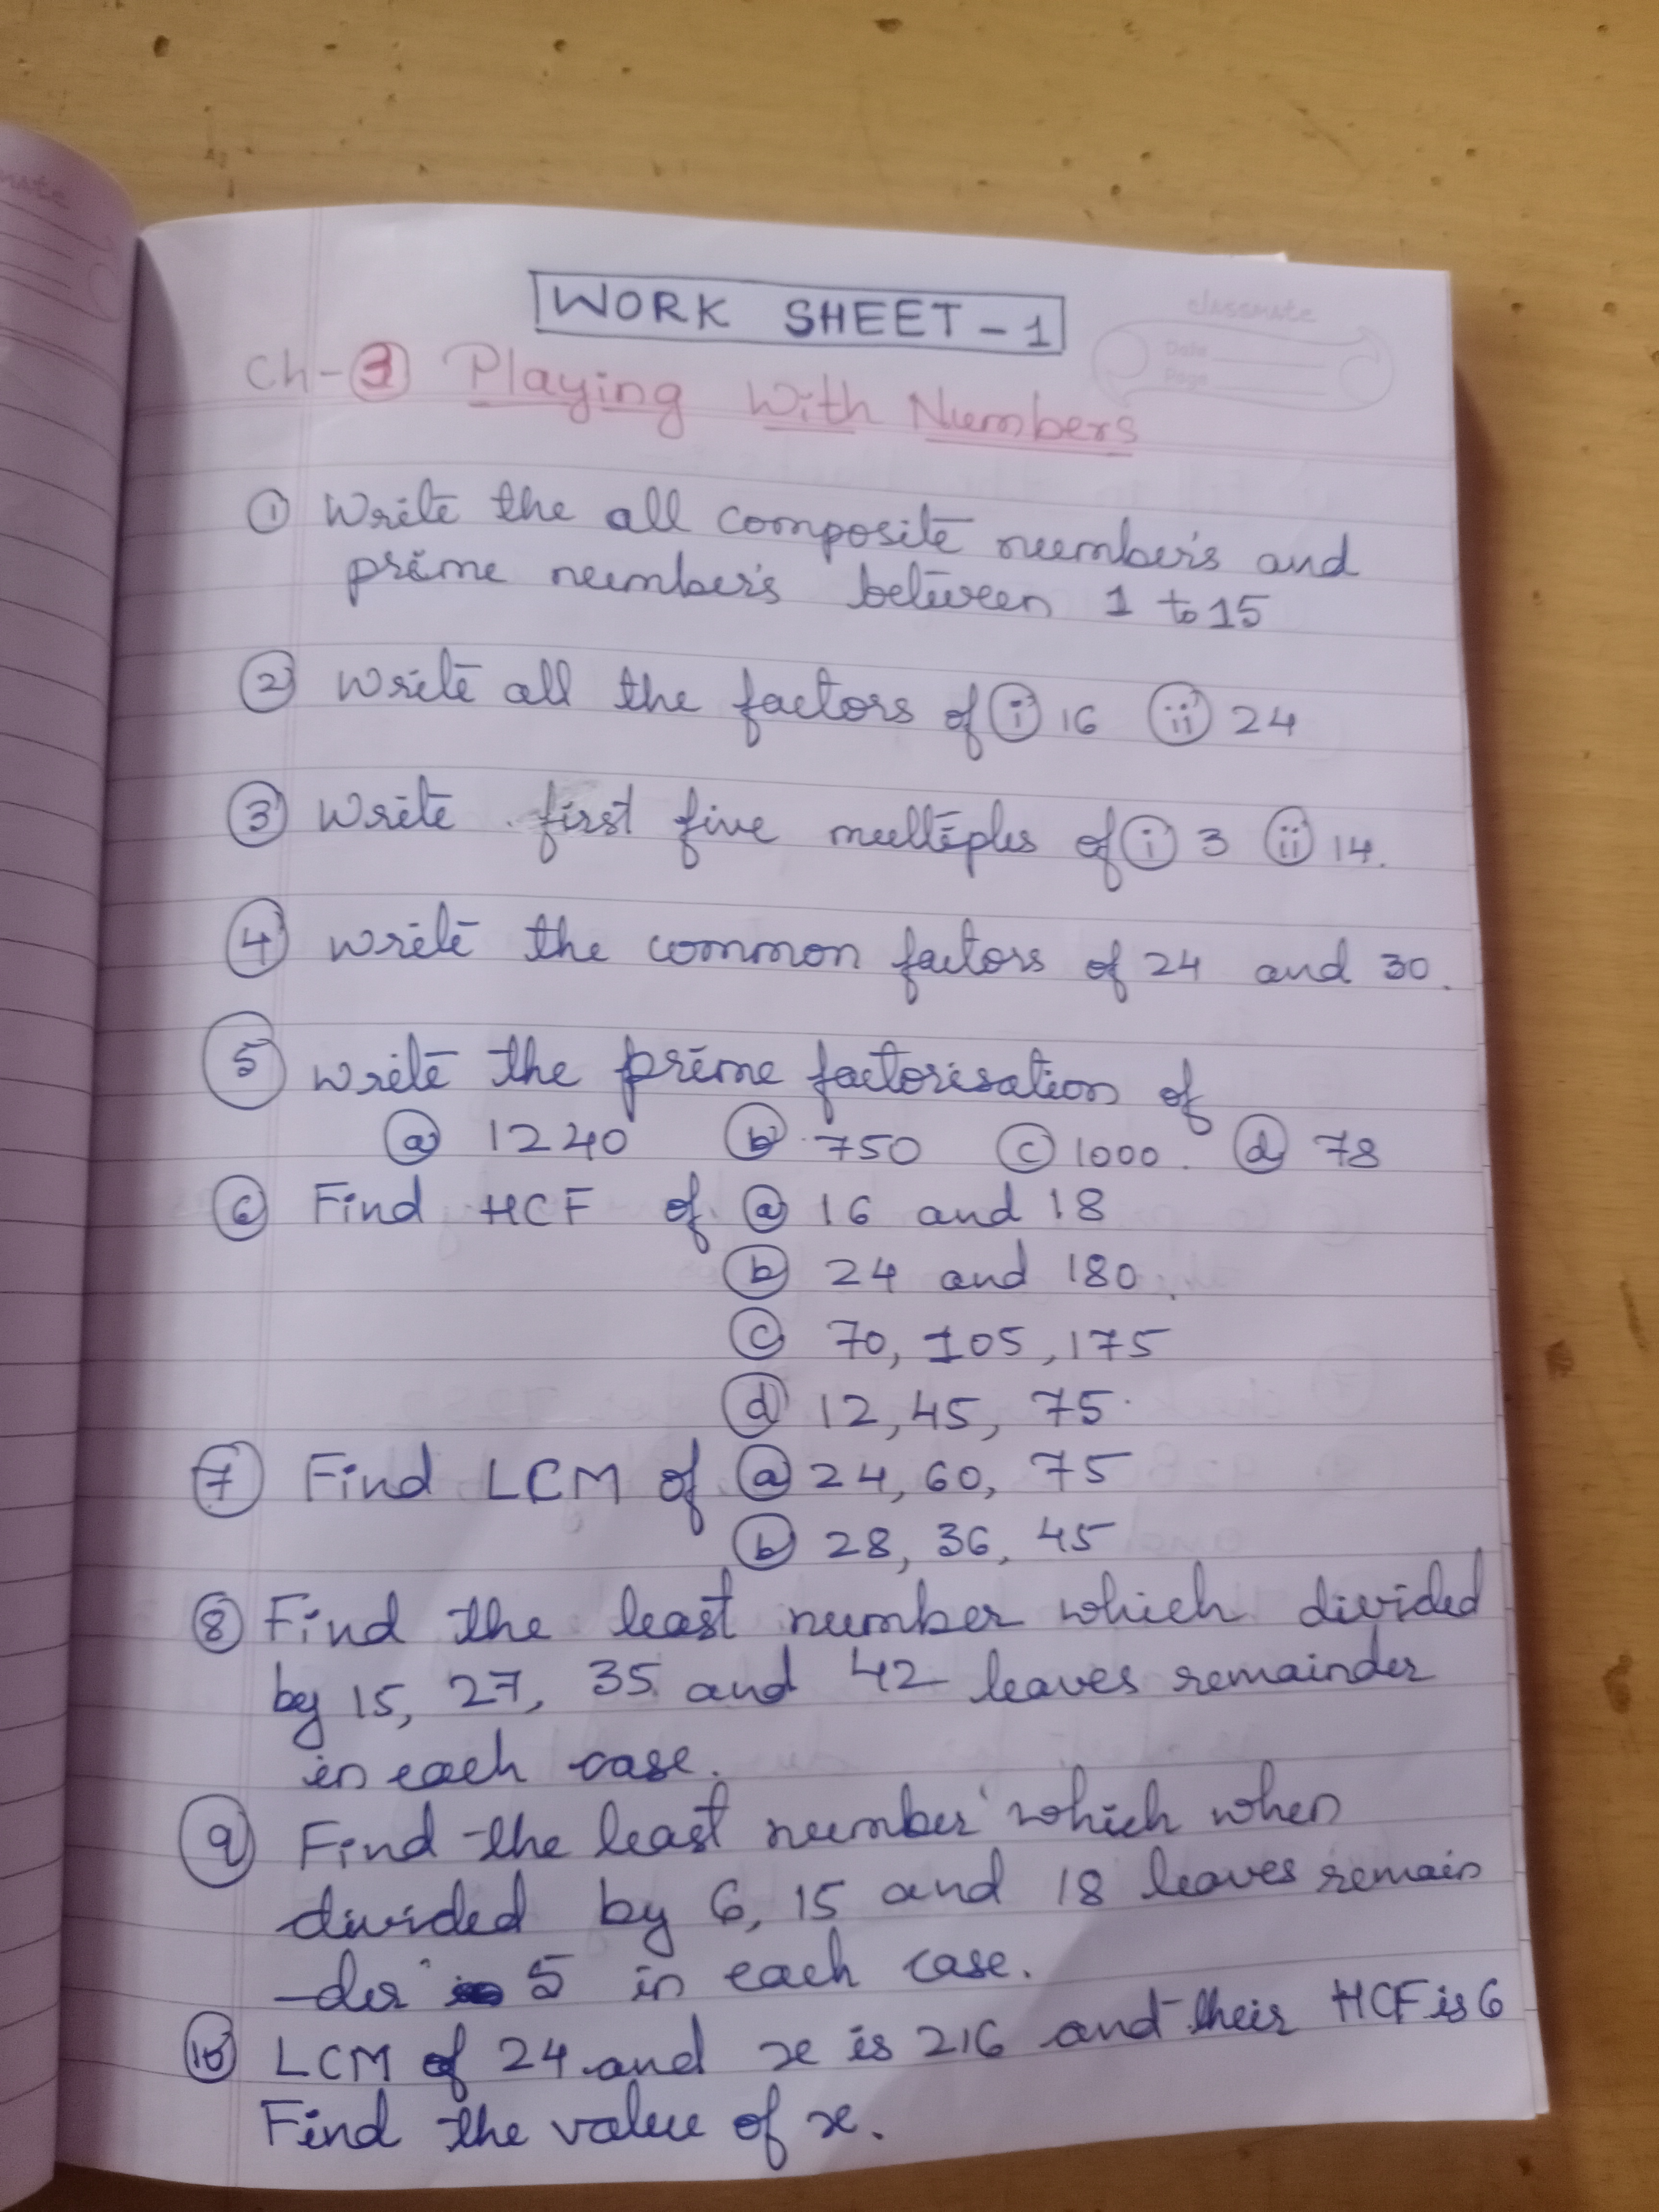 WORK SHEET - 1
classmate
Date
Page
Ch-3 Playing With Numbers
① Write the all composite number's and
prime number's between 1 to 15
② Write all the factors of ⓘ 16 ⓘⓘ 24
③ Write first five multiples of ⓘ 3 ⓘⓘ 14.
④ Write the common factors of 24 and 30.
⑤ Write the prime factorisation of
ⓐ 1240 ⓑ 750 ⓒ 1000. ⓓ 78
⑥ Find HCF of ⓐ 16 and 18
ⓑ 24 and 180.
ⓒ 70, 105, 175
ⓓ 12, 45, 75.
⑦ Find LCM of ⓐ 24, 60, 75
ⓑ 28, 36, 45
⑧ Find the least number which divided
by 15, 27, 35 and 42 leaves remainder
in each case.
⑨ Find the least number which when
divided by 6, 15 and 18 leaves remain
-der 5 in each case.
⑩ LCM of 24 and x is 216 and their HCF is 6
Find the value of x.